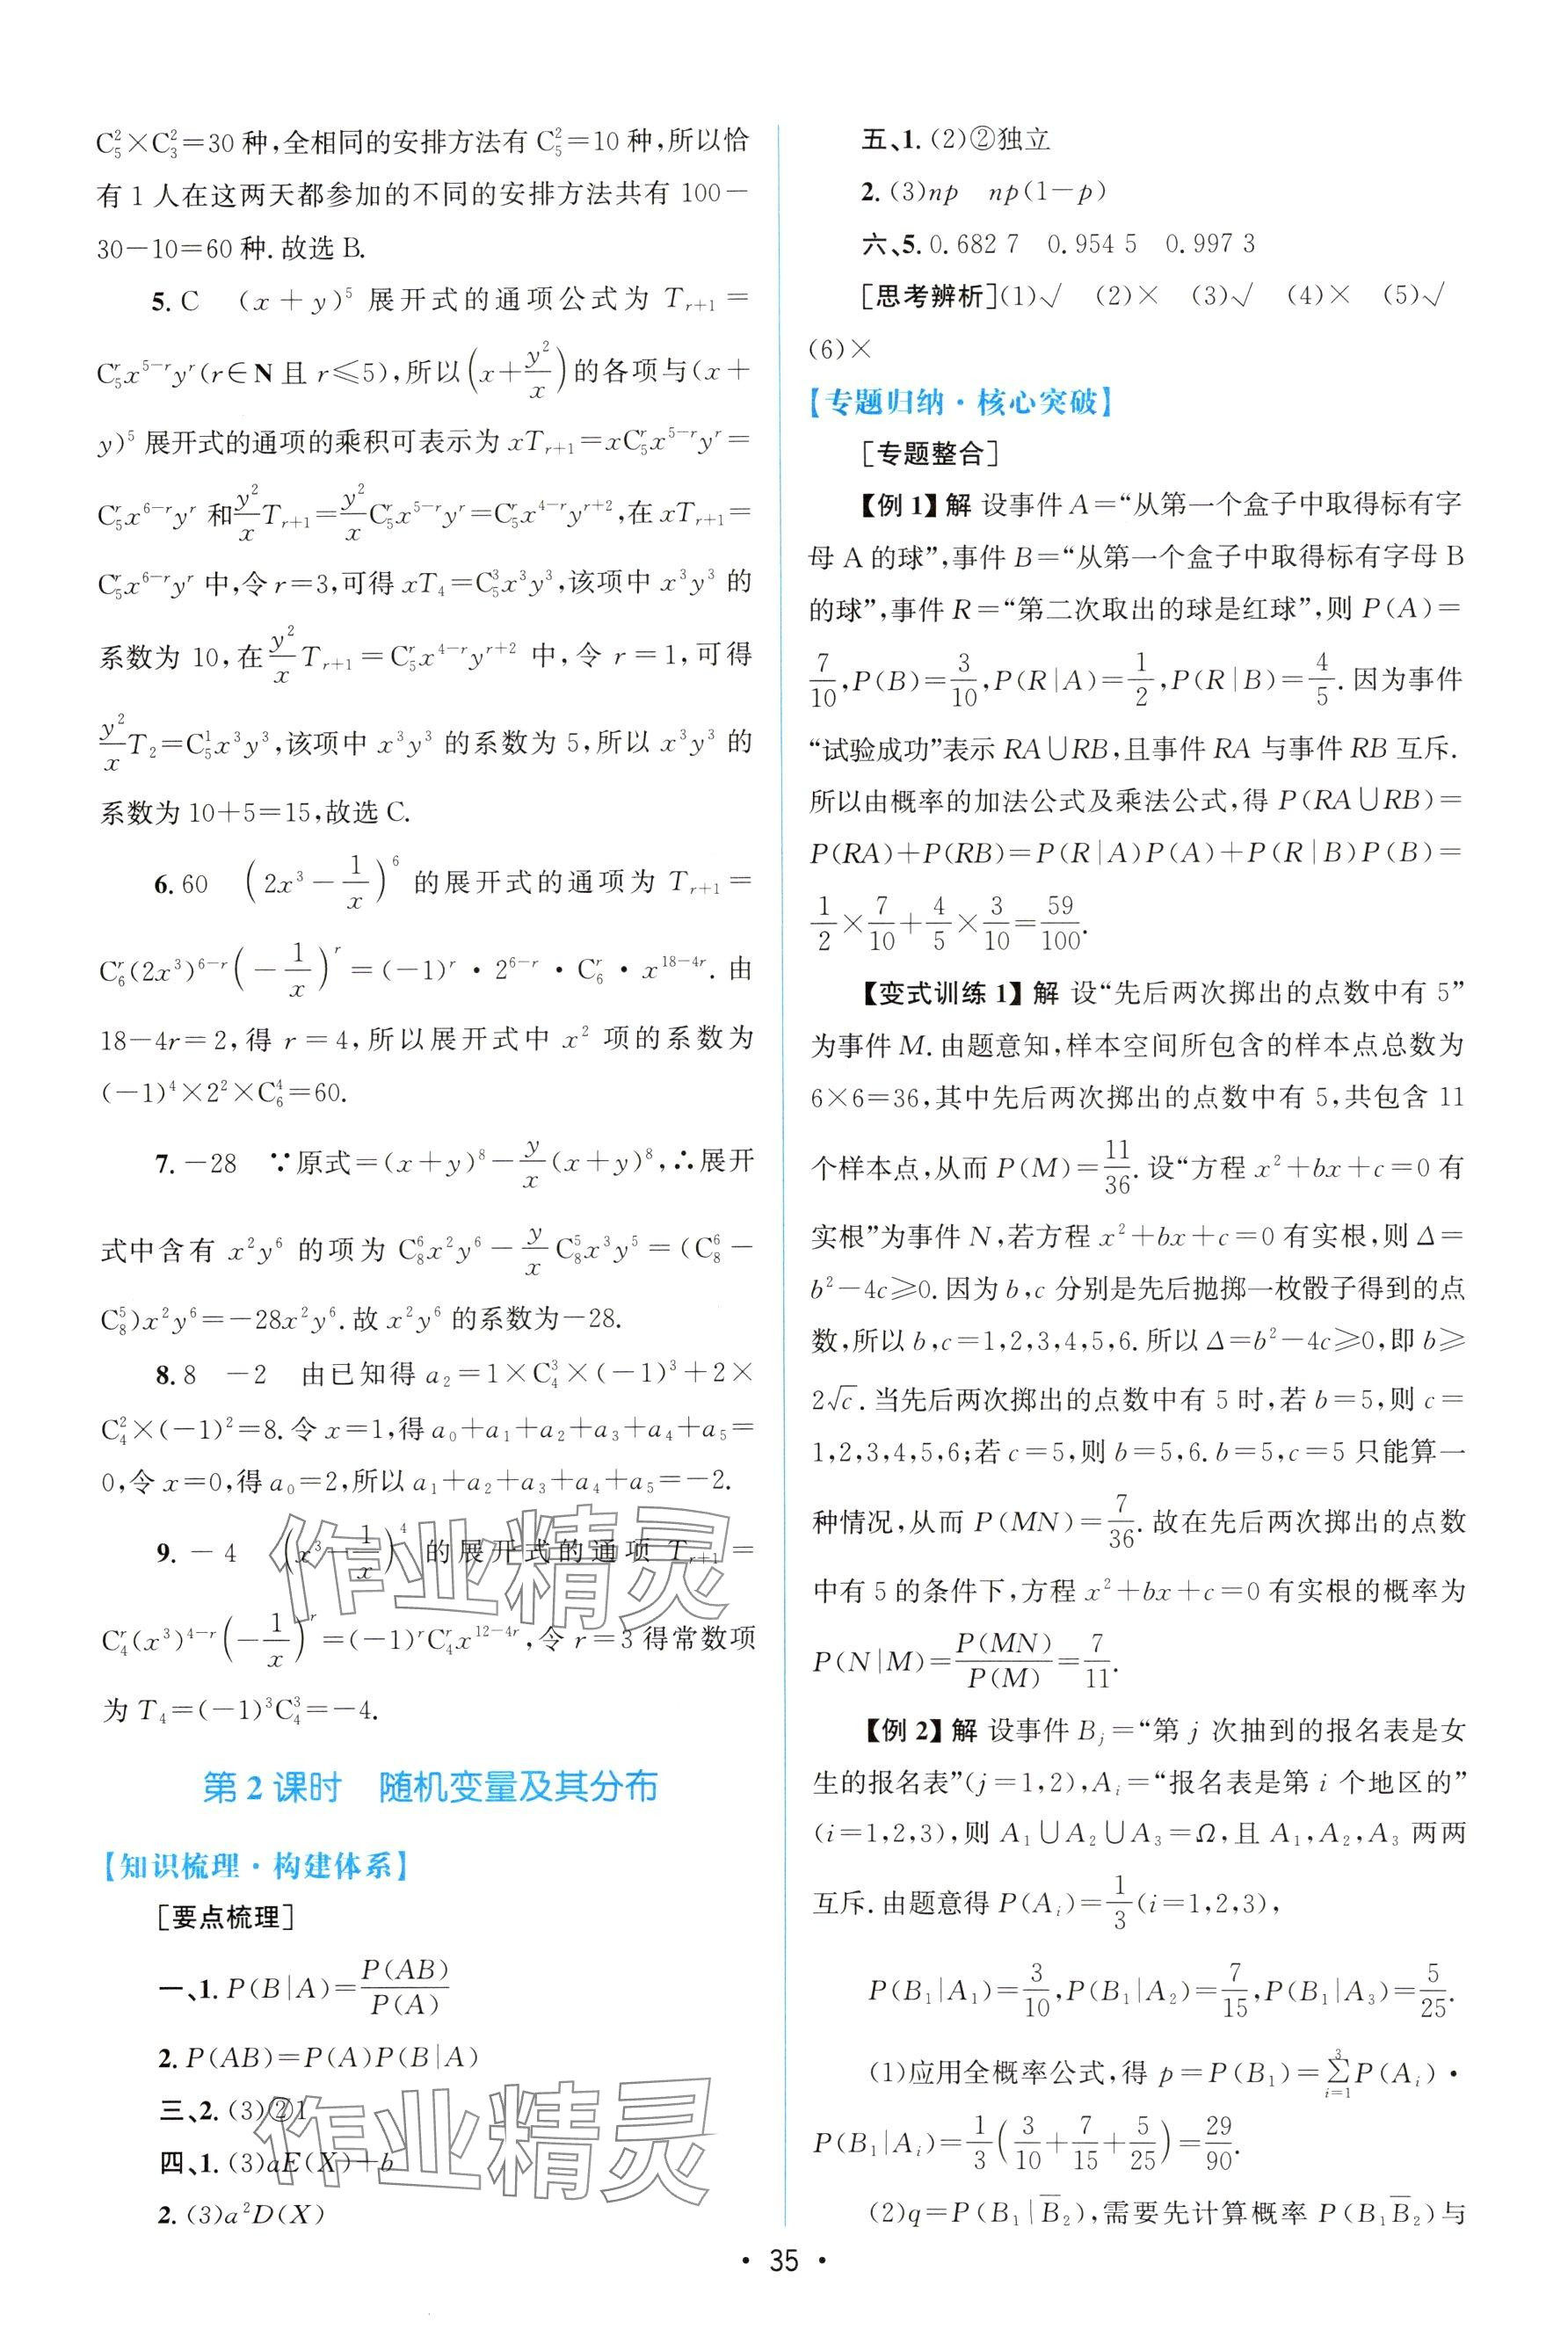 C₅²×C₃²=30 种,全相同的安排方法有 C₅²=10 种,所以恰
有 1 人在这两天都参加的不同的安排方法共有 100-
30-10=60 种.故选 B.
5. C (x+y)⁵ 展开式的通项公式为 Tᵣ₊₁=
C₅ʳx⁵⁻ʳyʳ(r∈N 且 r≤5),所以(x+y²/x)的各项与(x+
y)⁵ 展开式的通项的乘积可表示为 xTᵣ₊₁=xC₅ʳx⁵⁻ʳyʳ=
C₅ʳx⁶⁻ʳyʳ 和y²/x Tᵣ₊₁=y²/x C₅ʳx⁵⁻ʳyʳ=C₅ʳx⁴⁻ʳyʳ⁺²,在 xTᵣ₊₁=
C₅ʳx⁶⁻ʳyʳ 中,令 r=3,可得 xT₄=C₅³x³y³,该项中 x³y³ 的
系数为 10,在y²/x Tᵣ₊₁=C₅ʳx⁴⁻ʳyʳ⁺² 中,令 r=1,可得
y²/x T₂=C₅¹x³y³,该项中 x³y³ 的系数为 5,所以 x³y³ 的
系数为 10+5=15,故选 C.
6. 60 (2x³-1/x)⁶ 的展开式的通项为 Tᵣ₊₁=
C₆ʳ(2x³)⁶⁻ʳ(-1/x)ʳ=(-1)ʳ·2⁶⁻ʳ·C₆ʳ·x¹⁸⁻⁴ʳ. 由
18-4r=2,得 r=4,所以展开式中 x² 项的系数为
(-1)⁴×2²×C₆⁴=60.
7. -28 ∵原式=(x+y)⁸-y/x(x+y)⁸,∴展开
式中含有 x²y⁶ 的项为 C₈⁶x²y⁶-y/x C₈⁵x³y⁵=(C₈⁶-
C₈⁵)x²y⁶=-28x²y⁶.故 x²y⁶ 的系数为-28.
8. 8 -2 由已知得 a₂=1×C₄³×(-1)³+2×
C₄²×(-1)²=8.令 x=1,得 a₀+a₁+a₂+a₃+a₄+a₅=
0,令 x=0,得 a₀=2,所以 a₁+a₂+a₃+a₄+a₅=-2.
9. -4 (x³-1/x)⁴ 的展开式的通项 Tᵣ₊₁=
C₄ʳ(x³)⁴⁻ʳ(-1/x)ʳ=(-1)ʳC₄ʳx¹²⁻⁴ʳ,令 r=3 得常数项
为 T₄=(-1)³C₄³=-4.
作业精灵
第 2 课时 随机变量及其分布
【知识梳理·构建体系】
[要点梳理]
一、1. P(B|A)=P(AB)/P(A)
2. P(AB)=P(A)P(B|A)
三、2. (3)②1
四、1. (3)aE(X)+b
2. (3)a²D(X)
作业精灵
五、1. (2)②独立
2. (3)np np(1-p)
六、5. 0.682 7 0.954 5 0.997 3
[思考辨析](1)√ (2)× (3)√ (4)× (5)√
(6)×
【专题归纳·核心突破】
[专题整合]
【例 1】解 设事件 A=“从第一个盒子中取得标有字
母 A 的球”,事件 B=“从第一个盒子中取得标有字母 B
的球”,事件 R=“第二次取出的球是红球”,则 P(A)=
7/10,P(B)=3/10,P(R|A)=1/2,P(R|B)=4/5.因为事件
“试验成功”表示 RA∪RB,且事件 RA 与事件 RB 互斥.
所以由概率的加法公式及乘法公式,得 P(RA∪RB)=
P(RA)+P(RB)=P(R|A)P(A)+P(R|B)P(B)=
1/2×7/10+4/5×3/10=59/100.
【变式训练 1】解 设“先后两次掷出的点数中有 5”
为事件 M.由题意知,样本空间所包含的样本点总数为
6×6=36,其中先后两次掷出的点数中有 5,共包含 11
个样本点,从而 P(M)=11/36.设“方程 x²+bx+c=0 有
实根”为事件 N,若方程 x²+bx+c=0 有实根,则 Δ=
b²-4c≥0.因为 b,c 分别是先后抛掷一枚骰子得到的点
数,所以 b,c=1,2,3,4,5,6.所以 Δ=b²-4c≥0,即 b≥
2√c.当先后两次掷出的点数中有 5 时,若 b=5,则 c=
1,2,3,4,5,6;若 c=5,则 b=5,6.b=5,c=5 只能算一
种情况,从而 P(MN)=7/36.故在先后两次掷出的点数
中有 5 的条件下,方程 x²+bx+c=0 有实根的概率为
P(N|M)=P(MN)/P(M)=7/11.
【例 2】解 设事件 Bⱼ=“第 j 次抽到的报名表是女
生的报名表”(j=1,2),Aᵢ=“报名表是第 i 个地区的”
(i=1,2,3),则 A₁∪A₂∪A₃=Ω,且 A₁,A₂,A₃ 两两
互斥.由题意得 P(Aᵢ)=1/3(i=1,2,3),
P(B₁|A₁)=3/10,P(B₁|A₂)=7/15,P(B₁|A₃)=5/25.
(1)应用全概率公式,得 p=P(B₁)=∑³ᵢ₌₁P(Aᵢ)·
P(B₁|Aᵢ)=1/3(3/10+7/15+5/25)=29/90.
(2)q=P(B₁|B̅₂),需要先计算概率 P(B₁B̅₂)与
· 35 ·